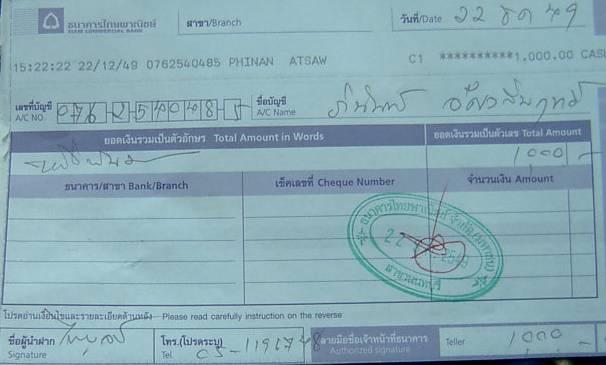 ธนาคารไทยพาณิชย์ สาขา/Branch วันที่/Date 22 ธค 49
SIAM COMMERCIAL BANK
15:22:22 22/12/49 0762540485 PHINAN ATSAW C1 **********1,000.00 CAS
เลขที่บัญชี 076-2-54048-5 ชื่อบัญชี
A/C NO. A/C Name
ยอดเงินรวมเป็นตัวอักษร Total Amount in Words ยอดเงินรวมเป็นตัวเลข Total Amount
1,000 -
ธนาคาร/สาขา Bank/Branch เช็คเลขที่ Cheque Number จำนวนเงิน Amount
ธนาคารไทยพาณิชย์ จำกัด (มหาชน)
22 2549
โปรดอ่านเงื่อนไขและรายละเอียดด้านหลัง—Please read carefully instruction on the reverse
ชื่อผู้นำฝาก โทร.(โปรดระบุ) ลายมือชื่อเจ้าหน้าที่ธนาคาร Teller 1000 -
Signature Tel. Authorized signature